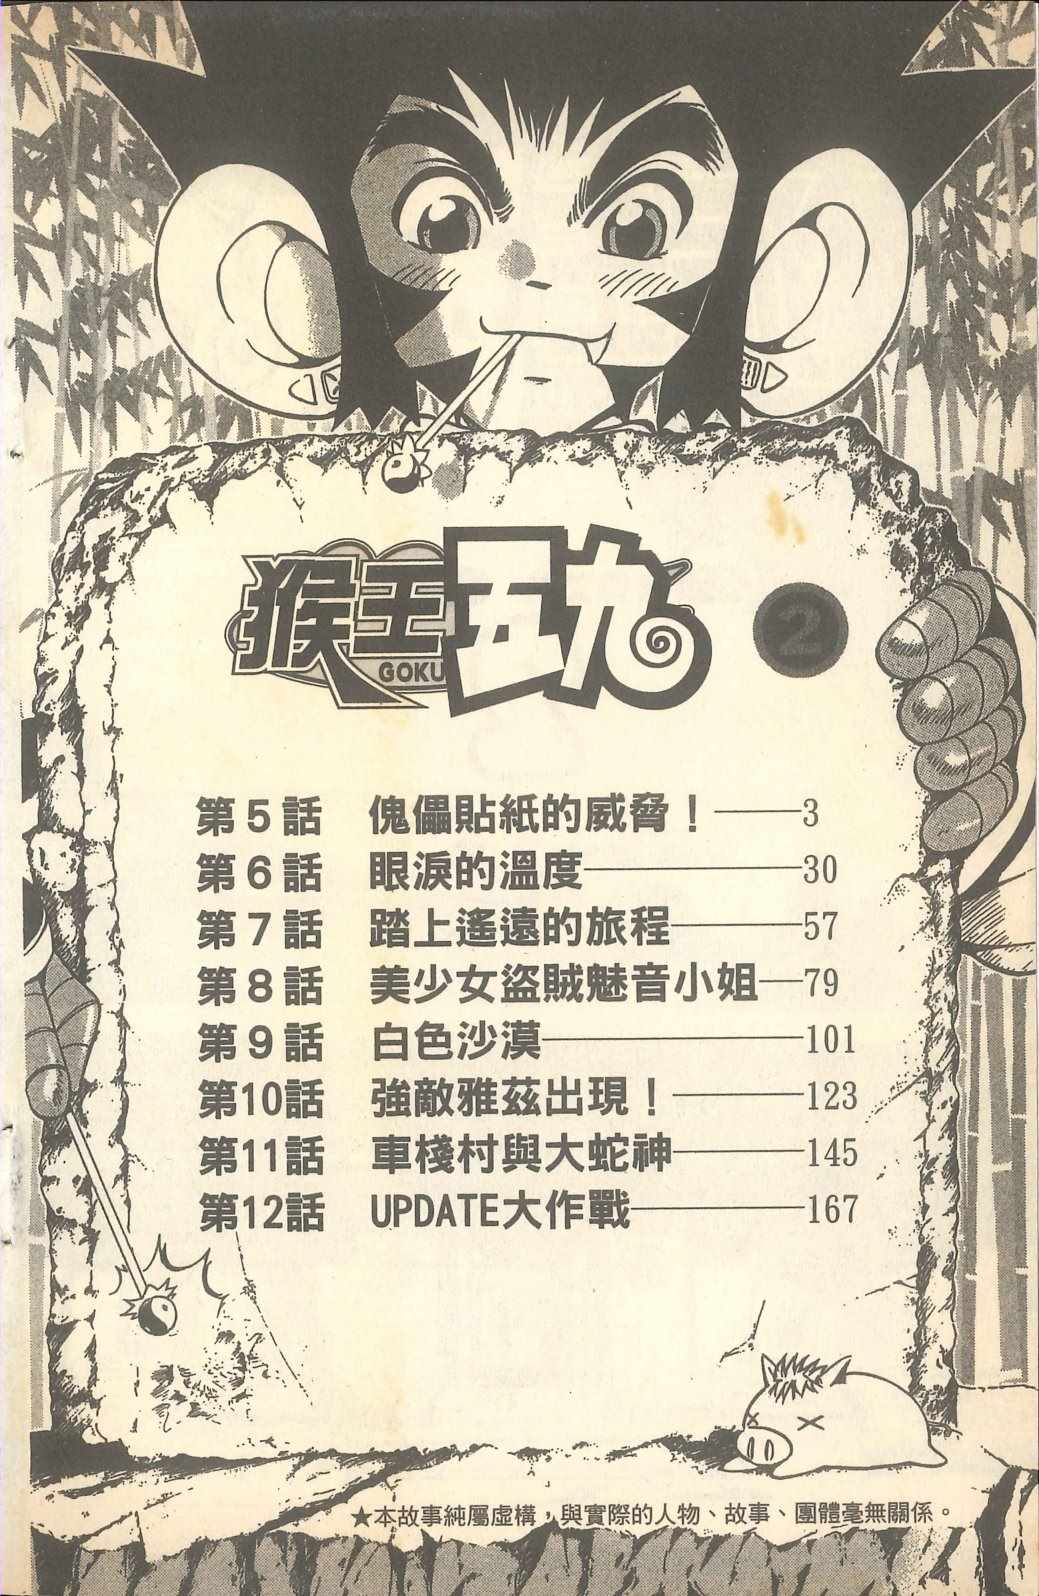 猴王五九
GOKU
2
第5話 傀儡貼紙的威脅！——3
第6話 眼淚的溫度——30
第7話 踏上遙遠的旅程——57
第8話 美少女盜賊魅音小姐—79
第9話 白色沙漠——101
第10話 強敵雅茲出現！——123
第11話 車棧村與大蛇神——145
第12話 UPDATE大作戰——167
★本故事純屬虛構，與實際的人物、故事、團體毫無關係。